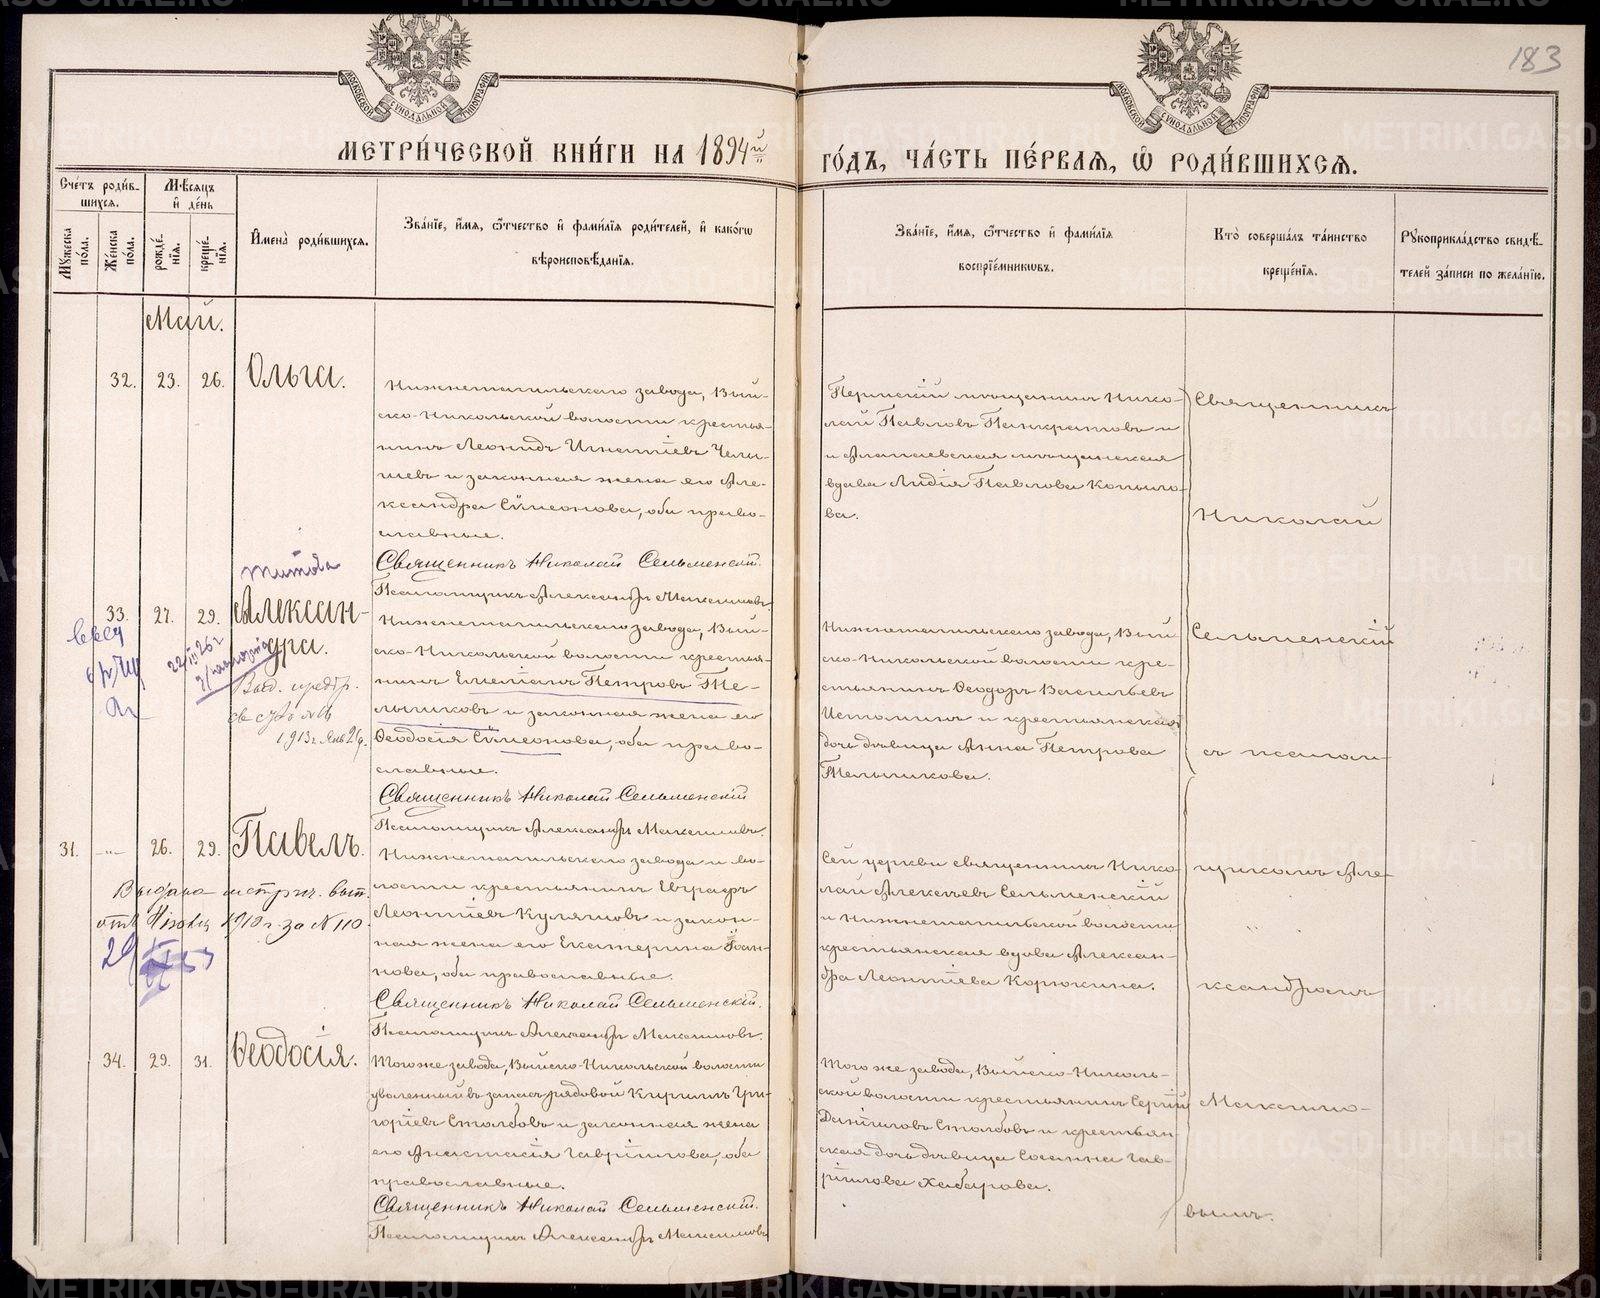 183
МОСКОВСКОЙ СУНОДАЛЬНОЙ ТИПОГРАФІИ
МОСКОВСКОЙ СУНОДАЛЬНОЙ ТИПОГРАФІИ
МЕТРИ́ЧЕСКОЙ КНИ́ГИ НА 1894й ГО́ДЪ, ЧА́СТЬ ПЕ́РВАЯ, Ѡ РОДИ́ВШИХСЯ.
Сче́тъ роди́в-
шихся.
Мꙋ́жеска по́ла.
Же́нска по́ла.
Мѣ́сяцъ
и҆ де́нь
рожде́-
нія.
креще́-
нія.
И҆мена̀ роди́вшихся.
Зва́нїе, и҆́мя, ѻ҆́тчество и҆ фами́лїя роди́телей, и҆ како́гѡ
вѣроисповѣ́данїя.
Зва́нїе, и҆́мя, ѻ҆́тчество и҆ фами́лїя
воспрїе́мникѡвъ.
Кто̀ соверша́лъ та́инство
креще́нїя.
Рꙋкоприкла́дство свидѣ́-
телей за́писи по жела́нїю.
Май.
32. 23. 26. Ольга.
Нижнетагильскаго завода, Вый-
ско-Никольской волости крестья-
нинъ Леонидъ Игнатіевъ Челы-
шевъ и законная жена его Але-
ксандра Сѵмеонова, оба право-
славные.
Священникъ Николай Сельменскій.
Псаломщикъ Александръ Максимовъ.
Пермскій мѣщанинъ Нико-
лай Павловъ Панкратовъ и
и Алапаевская мѣщанская
вдова Лидія Павлова Копыло-
ва.
Священникъ
Николай
Титова
33. 27. 29. Алексан-
дра.
22/III 26 г
Выд. предбр.
св. съ за №
1913 г. Янв 26.
Нижнетагильскаго завода, Вый-
ско-Никольской волости крестья-
нинъ Емеліанъ Петровъ Ме-
льниковъ и законная жена его
Ѳеодосія Сѵмеонова, оба право-
славные.
Священникъ Николай Сельменскій
Псаломщикъ Александръ Максимовъ.
Нижнетагильскаго завода, Вый-
ско-Никольской волости кре-
стьянинъ Ѳеодоръ Васильевъ
Истоминъ и крестьянская
дочь дѣвица Анна Петрова
Мельникова.
Сельменскій
съ псалом-
31. -"- 26. 29. Павелъ.
Выдана метрич. вып.
отъ 1910 г. за № 110.
Нижнетагильскаго завода и во-
лости крестьянинъ Евграфъ
Леонтіевъ Куляшовъ и закон-
ная жена его Екатерина Іоан-
нова, оба православные.
Священникъ Николай Сельменскій.
Псаломщикъ Александръ Максимовъ.
Сей церкви священникъ Нико-
лай Алексѣевъ Сельменскій
и Нижнетагильской волости
крестьянская вдова Алексан-
дра Леонтіева Корюкина.
щикомъ Але-
ксандромъ
34. 29. 31. Ѳеодосія.
Того же завода, Выйско-Никольской волости
уволенный въ запасъ рядовой Кириллъ Гри-
горіевъ Столбовъ и законная жена
его Анастасія Гавріилова, оба
православные.
Священникъ Николай Сельменскій.
Псаломщикъ Александръ Максимовъ
Того же завода, Выйско-Николь-
ской волости крестьянинъ Сергій
Даніиловъ Столбовъ и крестьян-
ская дочь дѣвица Сосанна Гав-
ріилова Хабарова.
Максимо-
вымъ.
METRIKI.GASO-URAL.RU